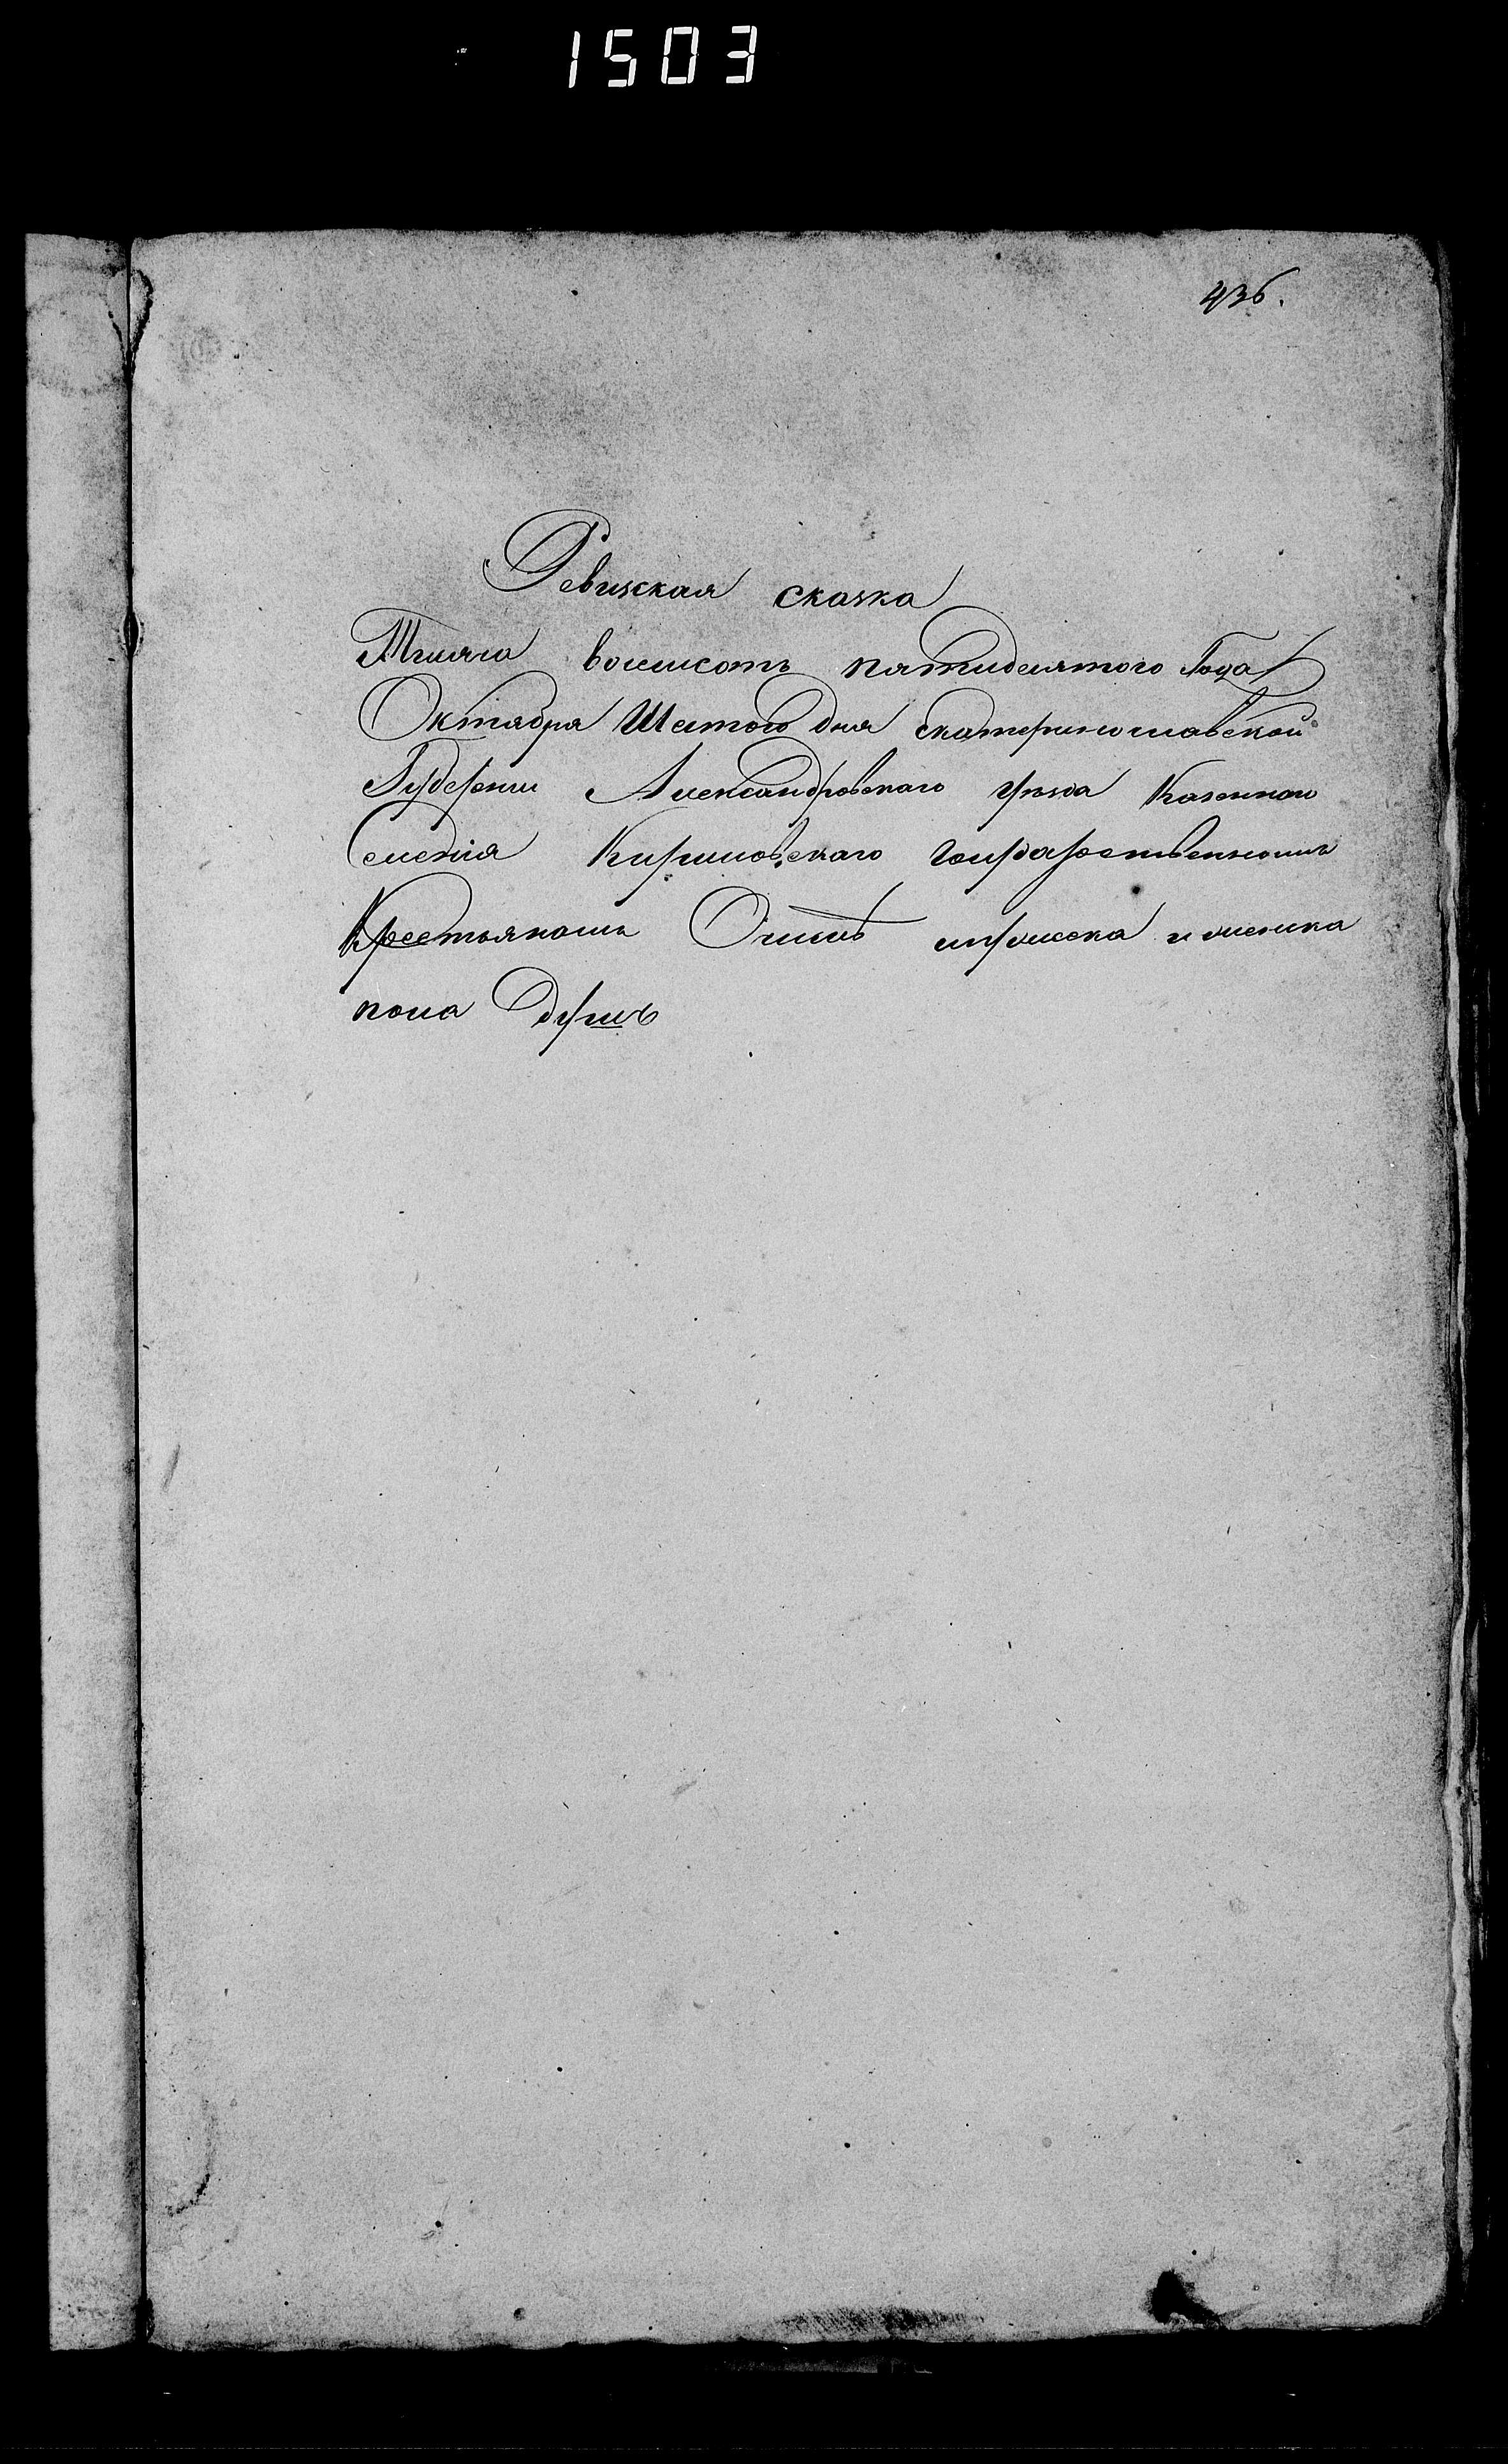 1503
436.
Ревизская сказка
Тысяча восемсотъ пятидесятого Года
Октября Шестого дня Екатеринославской
Губернии Александровского уезда Казенного
Селения Кирилловскаго Государственнымъ
Крестьяномъ О числѣ мужеска и женска
пола Душъ